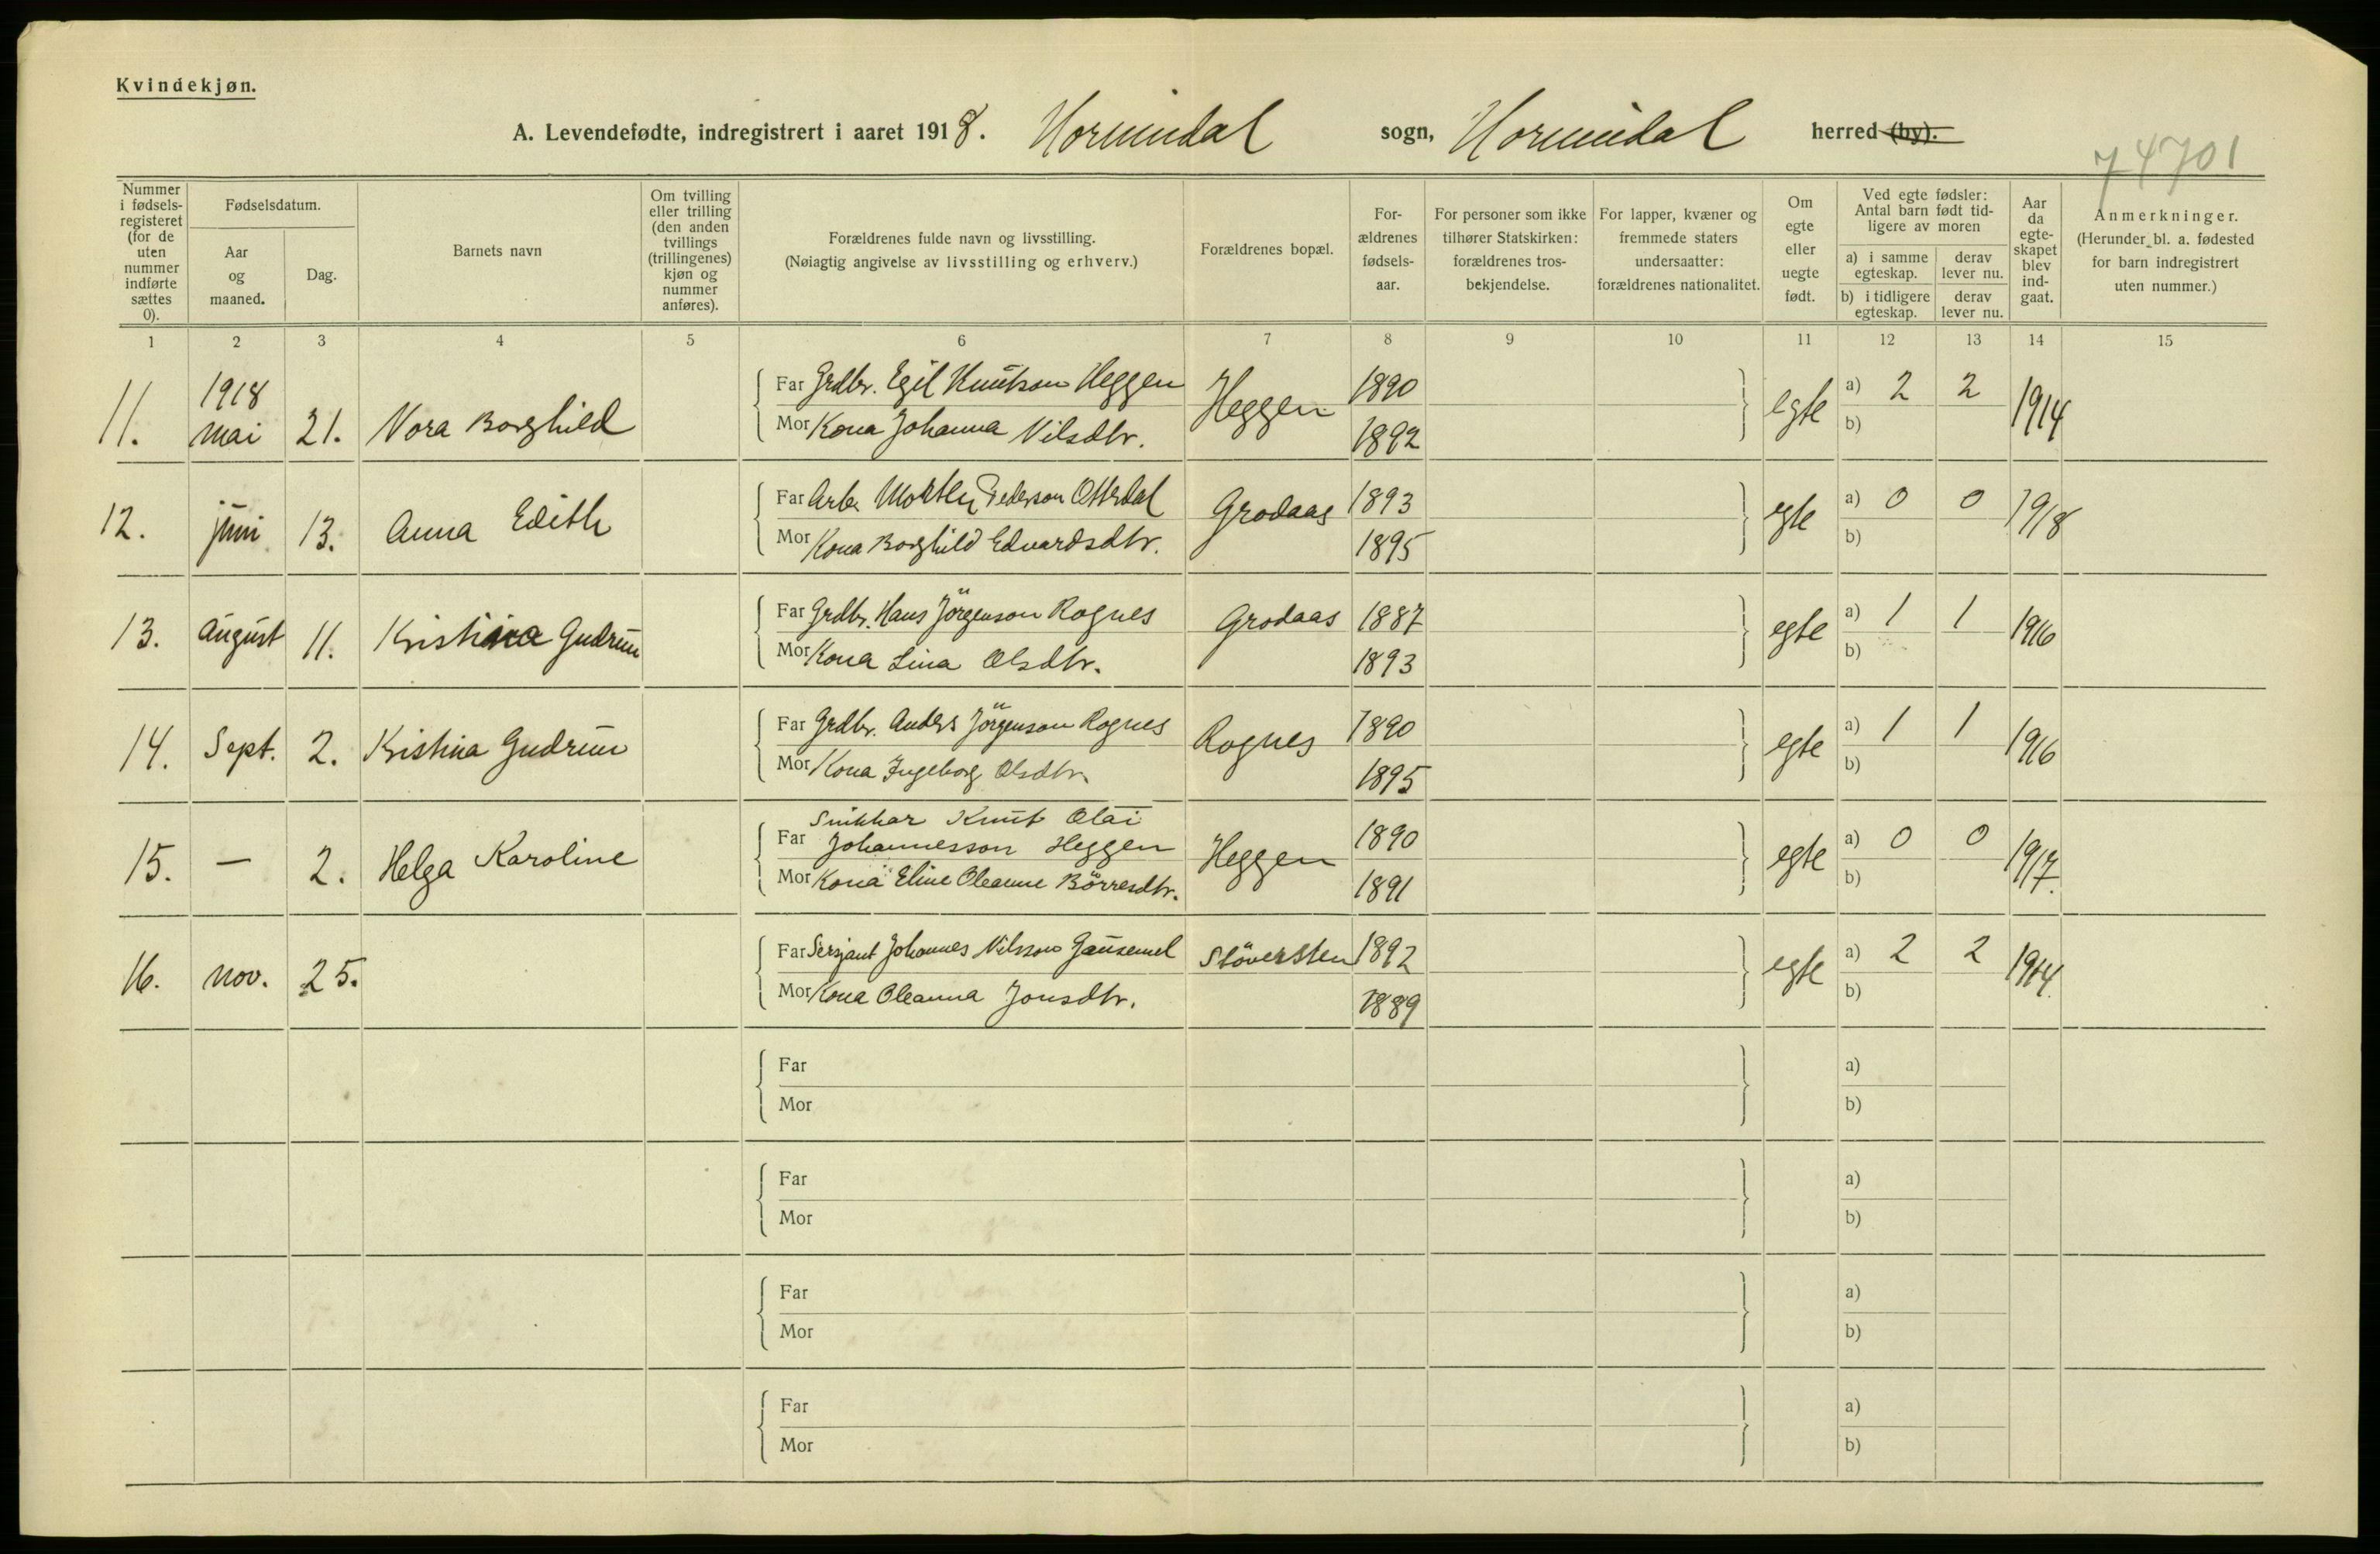 Kvindekjøn.
A. Levendefødte, indregistrert i aaret 1918. Hornindal sogn, Hornindal herred (by).
74701
Nummer i fødsels-registeret (for de uten nummer indførte sættes 0).
Fødselsdatum.
Aar og maaned.
Dag.
Barnets navn
Om tvilling eller trilling (den anden tvillings (trillingenes) kjøn og nummer anføres).
Forældrenes fulde navn og livsstilling.
(Nøiagtig angivelse av livsstilling og erhverv.)
Forældrenes bopæl.
For-ældrenes fødsels-aar.
For personer som ikke tilhører Statskirken: forældrenes tros-bekjendelse.
For lapper, kvæner og fremmede staters undersaatter: forældrenes nationalitet.
Om egte eller uegte født.
Ved egte fødsler: Antal barn født tid-ligere av moren
a) i samme egteskap.
derav lever nu.
b) i tidligere egteskap.
derav lever nu.
Aar da egte-skapet blev ind-gaat.
Anmerkninger.
(Herunder bl. a. fødested for barn indregistrert uten nummer.)
1 2 3 4 5 6 7 8 9 10 11 12 13 14 15
11. 1918 mai 21. Nora Borghild
Far Grdbr. Egil Knutson Heggen Heggen 1890 egte a) 2 2 1914
Mor Kona Johanna Nilsdtr. 1892 b)
12. juni 13. Anna Edith
Far Arb. Morten Pederson Otterdal Grodaas 1893 egte a) 0 0 1918
Mor Kona Borghild Edvardsdtr. 1895 b)
13. august 11. Kristina Gudrun
Far Grdbr. Hans Jörgenson Rognes Grodaas 1887 egte a) 1 1 1916
Mor Kona Lina Olsdtr. 1893 b)
14. Sept. 2. Kristina Gudrun
Far Grdbr. Anders Jörgenson Rognes Rognes 1890 egte a) 1 1 1916
Mor Kona Ingeborg Olsdtr. 1895 b)
15. — 2. Helga Karoline
Snikkar Knut Olai
Far Johannesson Heggen Heggen 1890 egte a) 0 0 1917.
Mor Kona Eline Oleanne Börresdtr. 1891 b)
16. nov. 25.
Far Sersjant Johannes Nilsson Gausemel Stöversten 1892 egte a) 2 2 1914.
Mor Kona Oleanna Jonsdtr. 1889 b)
Far a)
Mor b)
Far a)
Mor b)
Far a)
Mor b)
Far a)
Mor b)